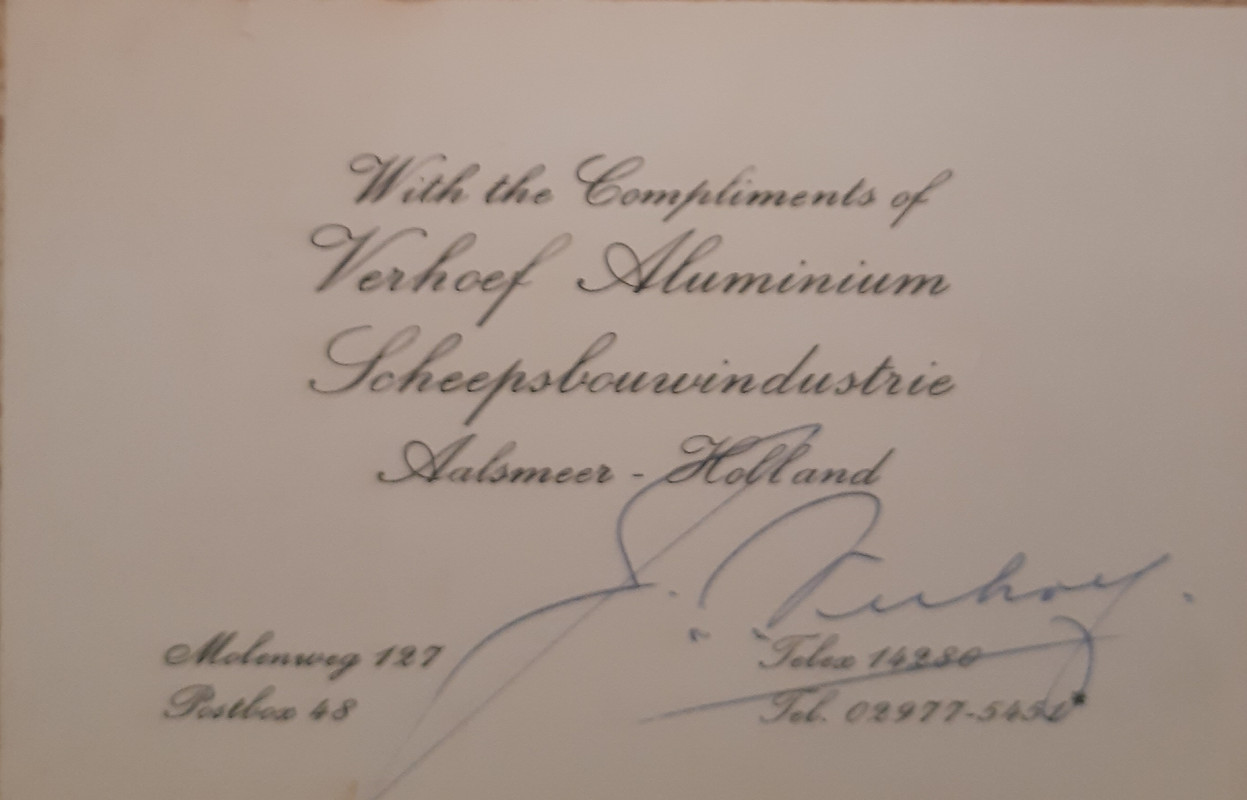 With the Compliments of
Verhoef Aluminium
Scheepsbouwindustrie
Aalsmeer - Holland
Verhoef.
Molenweg 127
Telex 14230
Postbox 48
Tel.